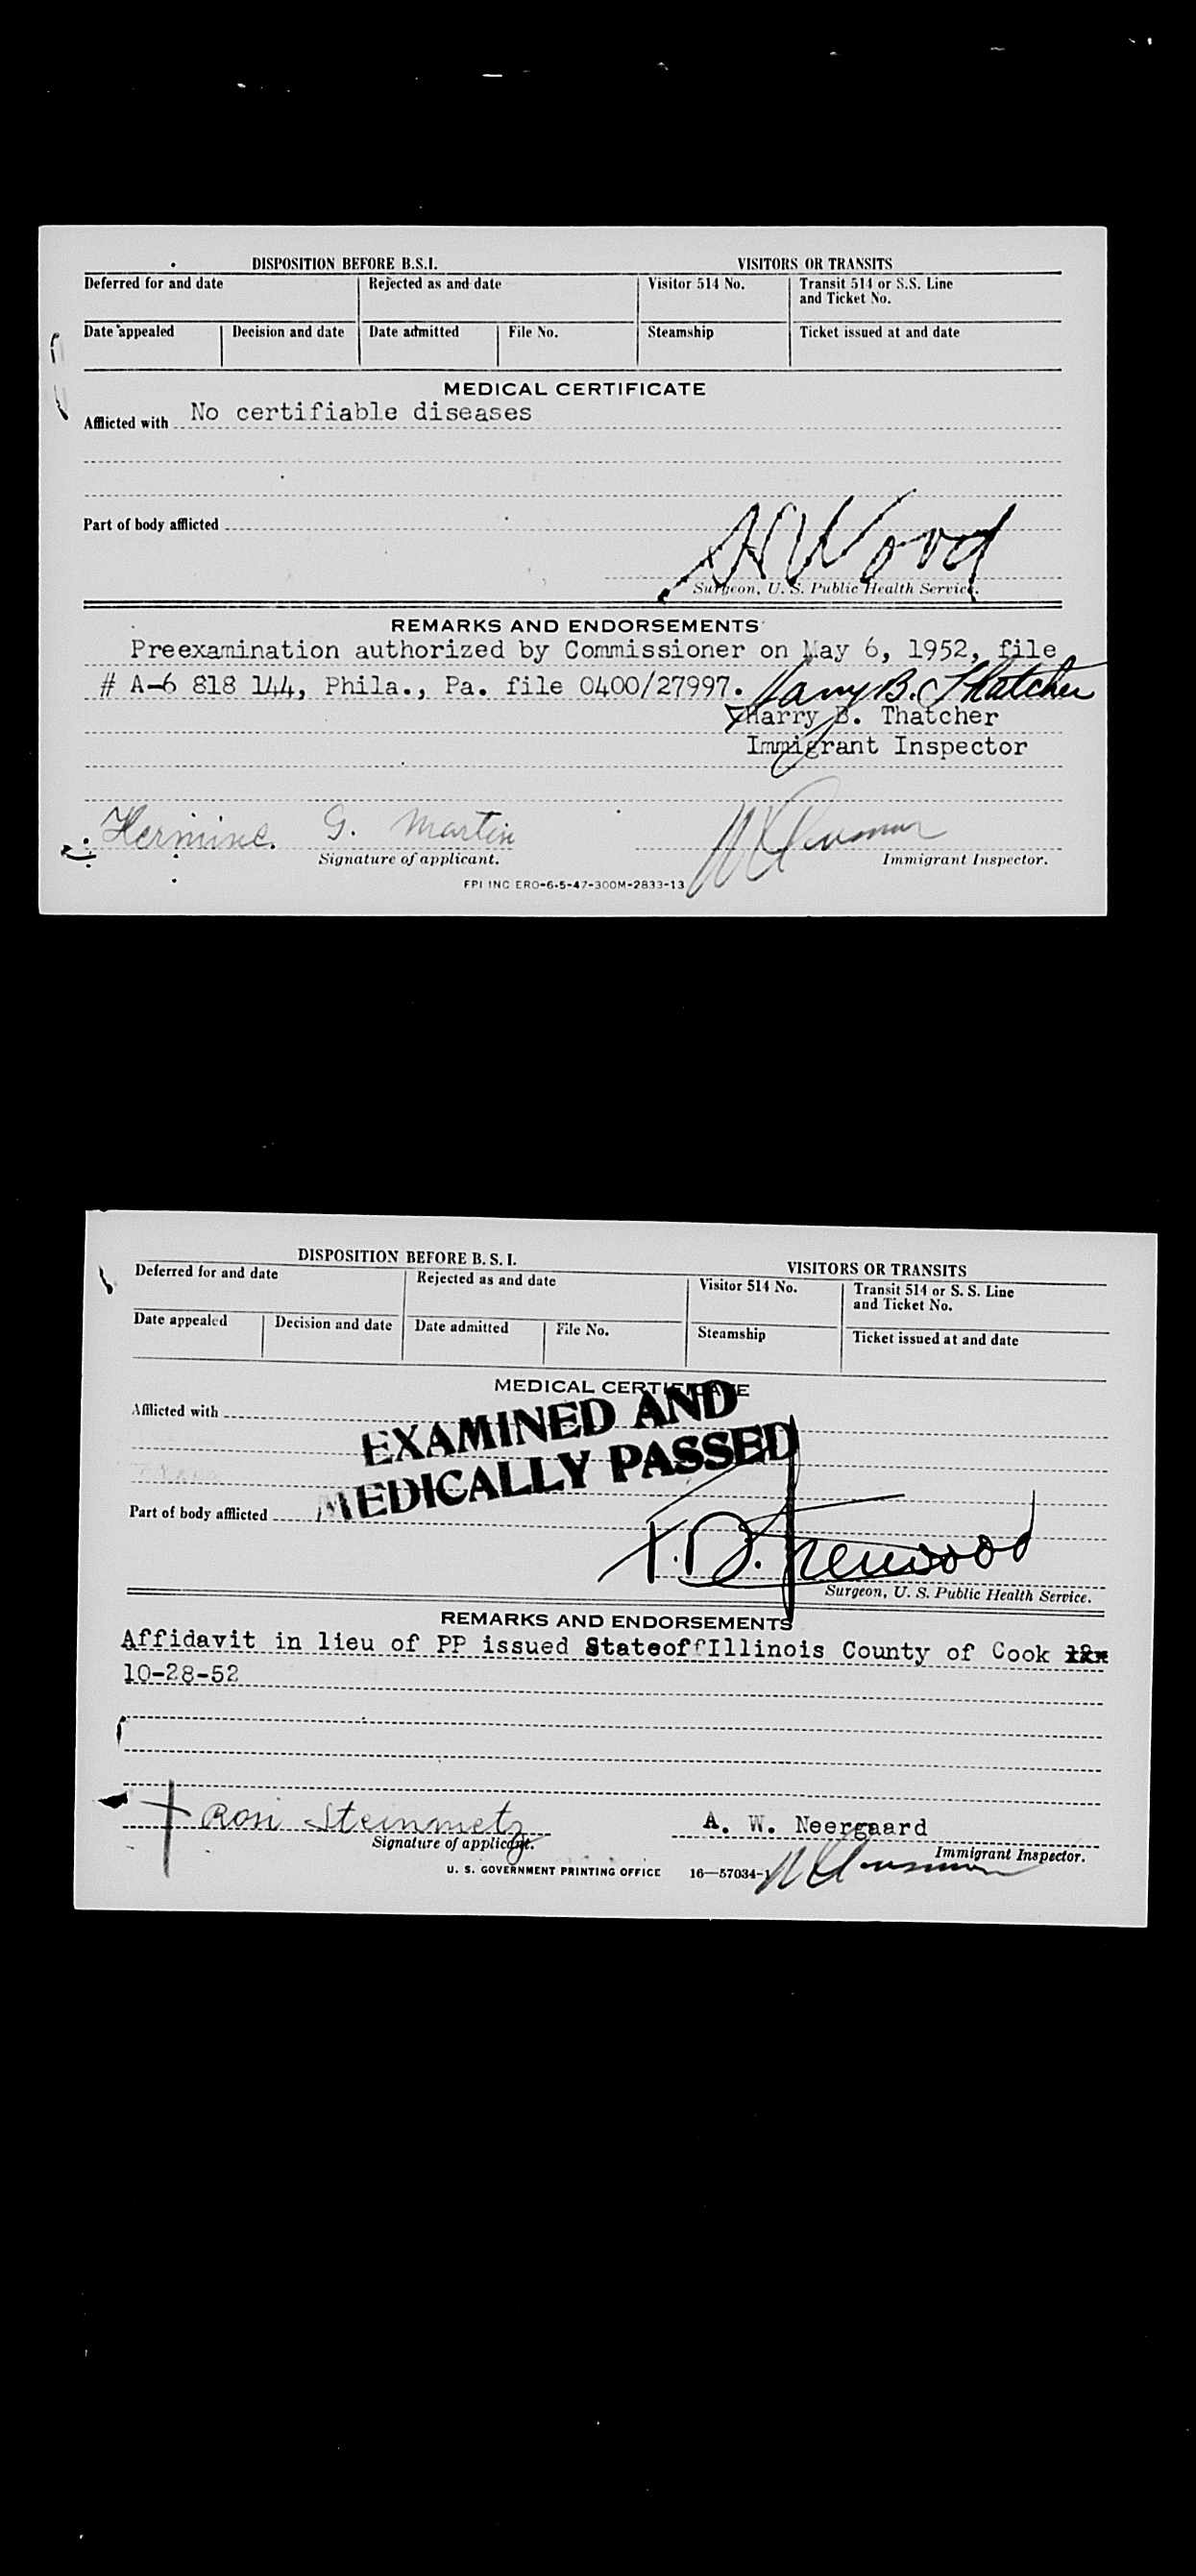 DISPOSITION BEFORE B.S.I. VISITORS OR TRANSITS
Deferred for and date Rejected as and date Visitor 514 No. Transit 514 or S.S. Line
and Ticket No.
Date appealed Decision and date Date admitted File No. Steamship Ticket issued at and date
MEDICAL CERTIFICATE
Afflicted with No certifiable diseases
Part of body afflicted
Wood
Surgeon, U. S. Public Health Service.
REMARKS AND ENDORSEMENTS
Preexamination authorized by Commissioner on May 6, 1952, file
# A-6 818 144, Phila., Pa. file 0400/27997. Harry B. Thatcher
Harry B. Thatcher
Immigrant Inspector
Hermine G. Martin
Signature of applicant. Immigrant Inspector.
FPI INC ERO-6-5-47-300M-2833-13
DISPOSITION BEFORE B. S. I. VISITORS OR TRANSITS
Deferred for and date Rejected as and date Visitor 514 No. Transit 514 or S. S. Line
and Ticket No.
Date appealed Decision and date Date admitted File No. Steamship Ticket issued at and date
MEDICAL CERTIFICATE
Afflicted with
EXAMINED AND
MEDICALLY PASSED
Part of body afflicted
Surgeon, U. S. Public Health Service.
REMARKS AND ENDORSEMENTS
Affidavit in lieu of PP issued StateoffIllinois County of Cook
10-28-52
Rosi Steinmetz A. W. Neergaard
Signature of applicant. Immigrant Inspector.
U. S. GOVERNMENT PRINTING OFFICE 16—57034-1